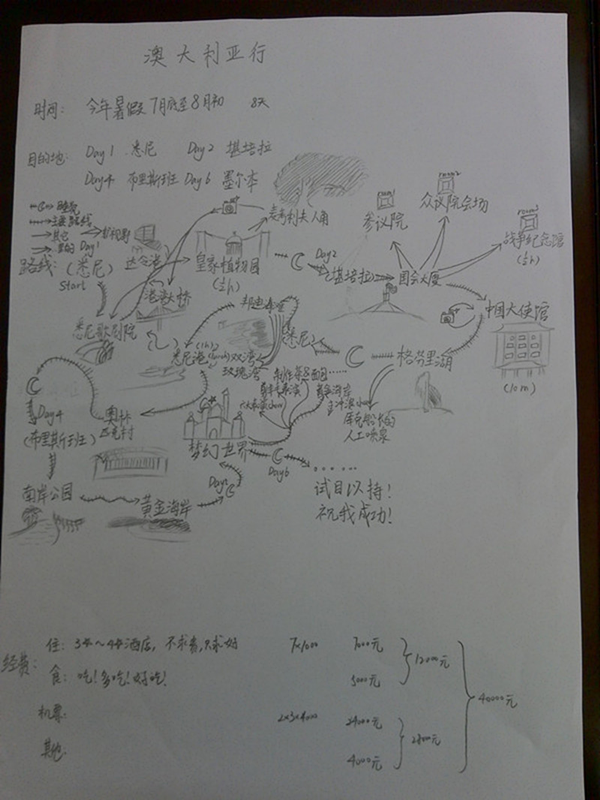 澳大利亚行
时间: 今年暑假 7月底至8月初 8天
目的地: Day1 悉尼 Day2 堪培拉
Day4 布里斯班 Day6 墨尔本
room1
参议院
room2
众议院会场
room3
战争纪念馆
(½h)
麦考利夫人角
其它
Day1
路线: (悉尼)
Start
达令港
皇家植物园
(½h)
Day2
堪培拉
国会大厦
中国大使馆
(10m)
港澳大桥
悉尼歌剧院
(1h)
悉尼港
双湾
玫瑰湾
悉尼
格里芬湖
库克船长的
人工喷泉
Day4
(布里斯班)
奥林
匹克村
梦幻世界
Day6
……
试目以待!
祝我成功!
南岸公园
黄金海岸
Day5
经费:
住: 3☆~4☆酒店, 不求贵,只求好 7×1000 7000元
食: 吃!多吃!好吃! 5000元
12000元
机票: 2×3×4000 24000元
其他: 4000元
28000元
40000元